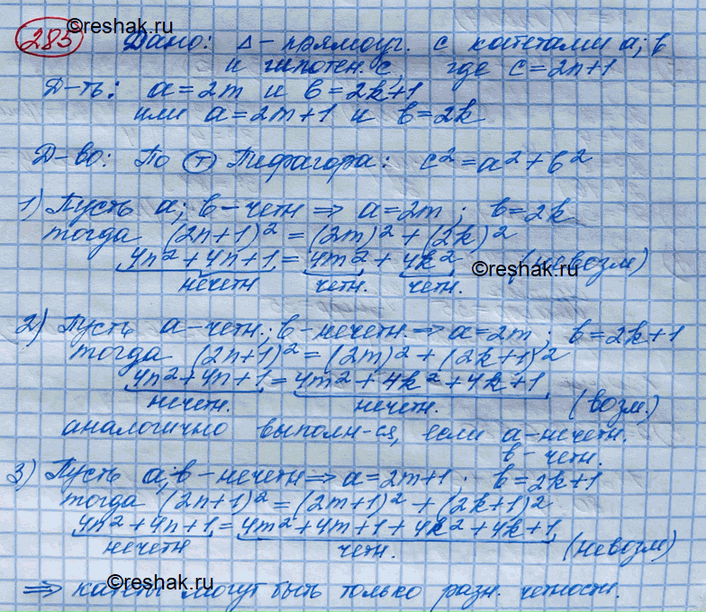 ©reshak.ru
285 Дано: Δ - прямоуг. с катетами a; b
и гипотен. c, где c=2n+1
Д-ть: a=2m и b=2k+1
или a=2m+1 и b=2k
Д-во: По Т Пифагора: c²=a²+b²
1) Пусть a; b - четн ⇒ a=2m; b=2k
тогда (2n+1)² = (2m)² + (2k)²
4n²+4n+1 = 4m² + 4k² (невозм)
нечетн четн. четн.
©reshak.ru
2) Пусть a - четн.; b - нечетн. ⇒ a=2m; b=2k+1
тогда (2n+1)² = (2m)² + (2k+1)²
4n²+4n+1 = 4m²+4k²+4k+1
нечетн. нечетн. (возм.)
аналогично выполн-ся, если a - нечетн.
b - четн.
3) Пусть a; b - нечетн ⇒ a=2m+1; b=2k+1
тогда (2n+1)² = (2m+1)² + (2k+1)²
4n²+4n+1 = 4m²+4m+1+4k²+4k+1
нечетн четн. (невозм)
©reshak.ru
⇒ катеты могут быть только разн. четности.